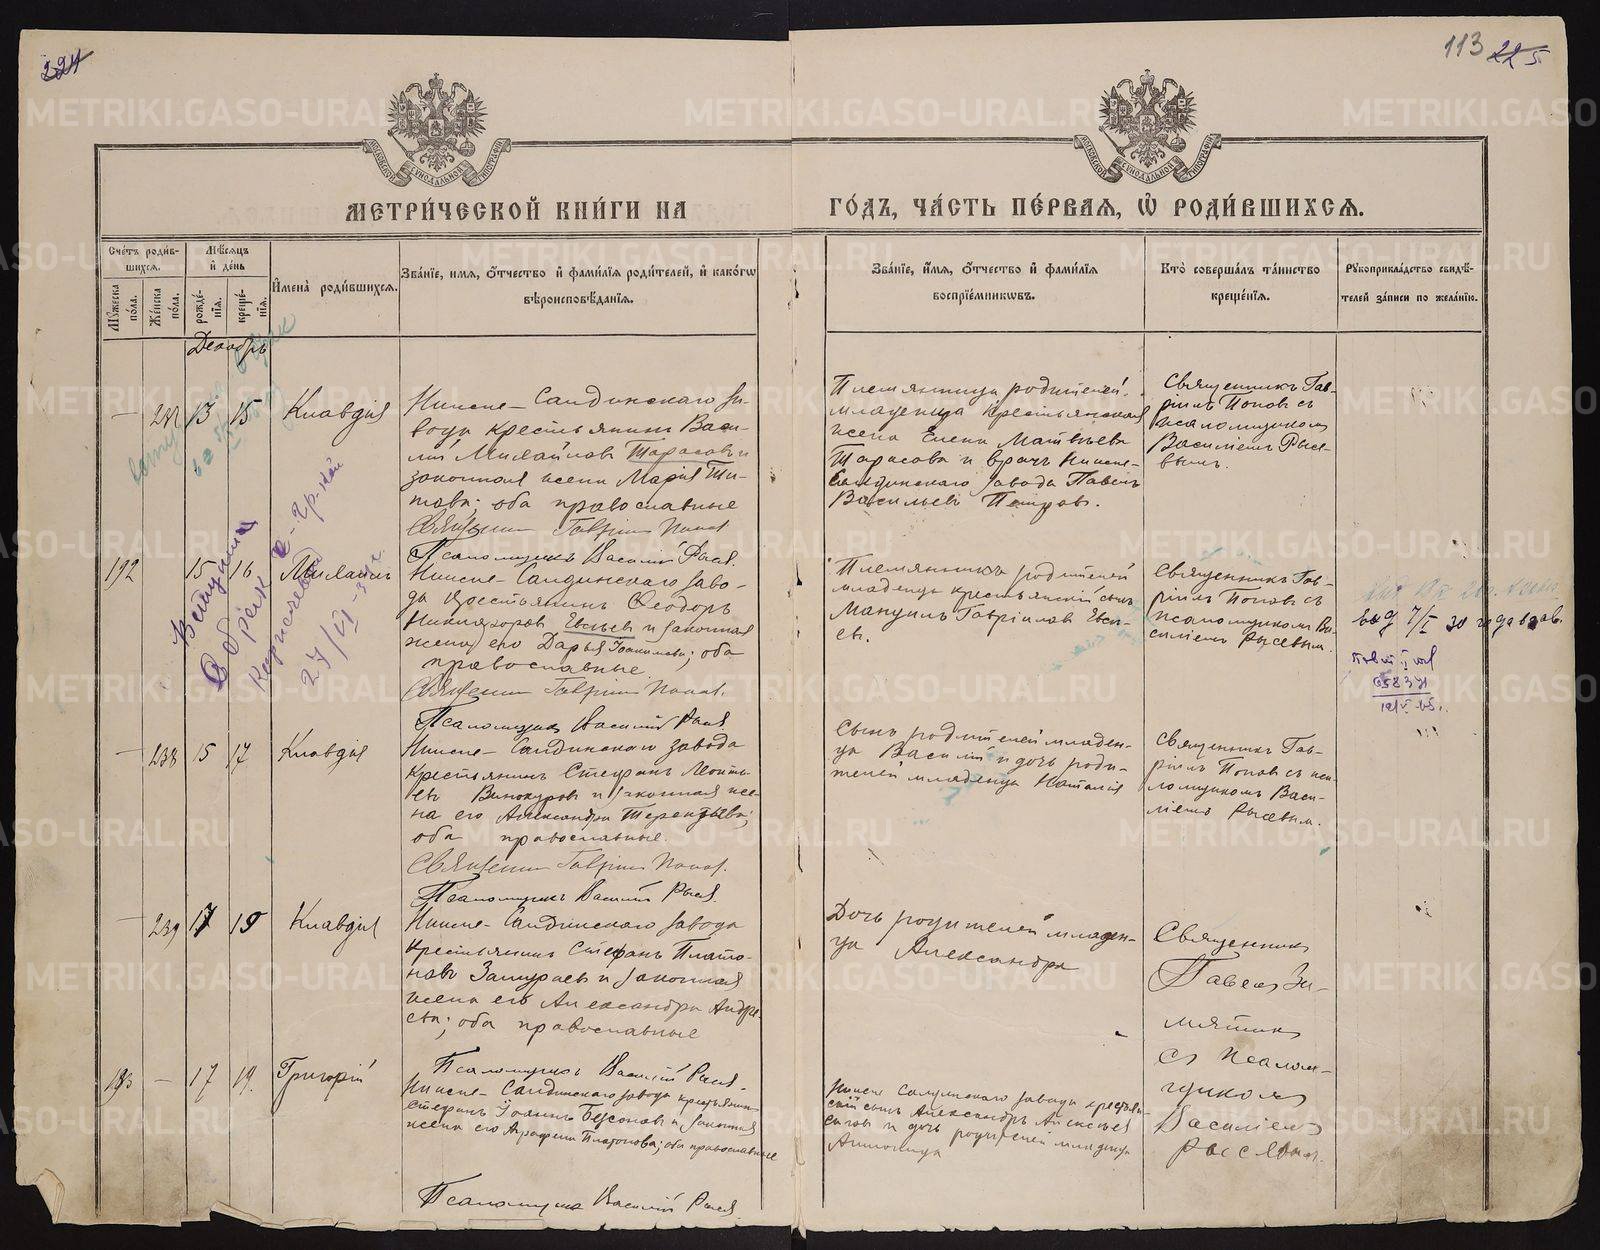 224
113 225
МОСКОВСКОЙ СУНОДАЛЬНОЙ ТИПОГРАФІИ
МОСКОВСКОЙ СУНОДАЛЬНОЙ ТИПОГРАФІИ
МЕТРИ́ЧЕСКОЙ КНИ́ГИ НА
ГО́ДЪ, ЧА́СТЬ ПЕ́РВАЯ, Ѡ҆ РОДИ́ВШИХСЯ.
Сче́тъ роди́в-
шихся.
Мꙋ́жеска по́ла.
Же́нска по́ла.
Мѣ́сяцъ
и҆ де́нь
рожде́-
нія.
креще́-
нія.
И҆мена̀ роди́вшихся.
Зва́ніе, имя, о҆́тчество и҆ фами́лія роди́телей, и҆ како́гѡ
вѣроисповѣ́данія.
Зва́ніе, и҆́мя, о҆́тчество и҆ фами́лія
воспріе́мникѡвъ.
Кто̀ соверша́лъ та́инство
креще́нія.
Рꙋкоприкла́дство свидѣ́-
телей за́писи по жела́нію.
Декабрь
— 237 13 15 Клавдія
Нижне-Салдинскаго за-
вода крестьянинъ Васи-
лій Михайловъ Тарасовъ и
законная жена Марія Ти-
това; оба православные
Священник Гавріил Попов.
Псаломщикъ Василій Рысев.
Племянница родителей
младенца крестьянская
жена Елена Матвѣева
Тарасова и врачъ Нижне-
Салдинскаго завода Павелъ
Васильевъ Петровъ.
Священникъ Гав-
ріилъ Поповъ съ
псаломщикомъ
Василіемъ Рысе-
вымъ.
192 — 15 16 Михаилъ
Нижне-Салдинскаго заво-
да крестьянинъ Ѳеодоръ
Никифоровъ Евсѣевъ и законная
жена его Дарья Іоакимова; оба
православные
Священник Гавріил Попов.
Псаломщик Василій Рысев
Племянникъ родителей
младенца крестьянскій сынъ
Мануилъ Гавріиловъ Евсѣ-
евъ.
Священникъ Гав-
ріилъ Поповъ съ
псаломщикомъ Ва-
силіемъ Рысевымъ.
27/VI-39
— 238 15 17 Клавдія
Нижне-Салдинскаго завода
крестьянинъ Стефанъ Моисе-
евъ Винокуровъ и законная же-
на его Александра Терентьева;
оба православные.
Священник Гавріил Попов.
Псаломщикъ Василій Рысев.
Сынъ родителей младен-
ца Василій и дочь роди-
телей младенца Наталія
Священникъ Гав-
ріилъ Поповъ съ пса-
ломщикомъ Васи-
ліемъ Рысевым.
— 239 17 19 Клавдія
Нижне-Салдинскаго завода
крестьянинъ Стефанъ Плато-
новъ Замураевъ и законная
жена его Александра Андре-
ева; оба православные
Псаломщикъ Василій Рысев.
Дочь родителей младен-
ца Александра
Священник
Павел Зи-
мятник
с Псалом-
щиком
Василіем
Рысевым.
193 — 17 19. Григорій
Нижне-Салдинскаго завода крестьянин
Стефанъ Іоаннъ Бусоновъ и законная
жена его Аграфена Платонова; оба православные
Псаломщикъ Василій Рысев
Нижне Салдинскаго завода крестьян-
скій сынъ Александръ Алексѣев
и дочь родителей младенца